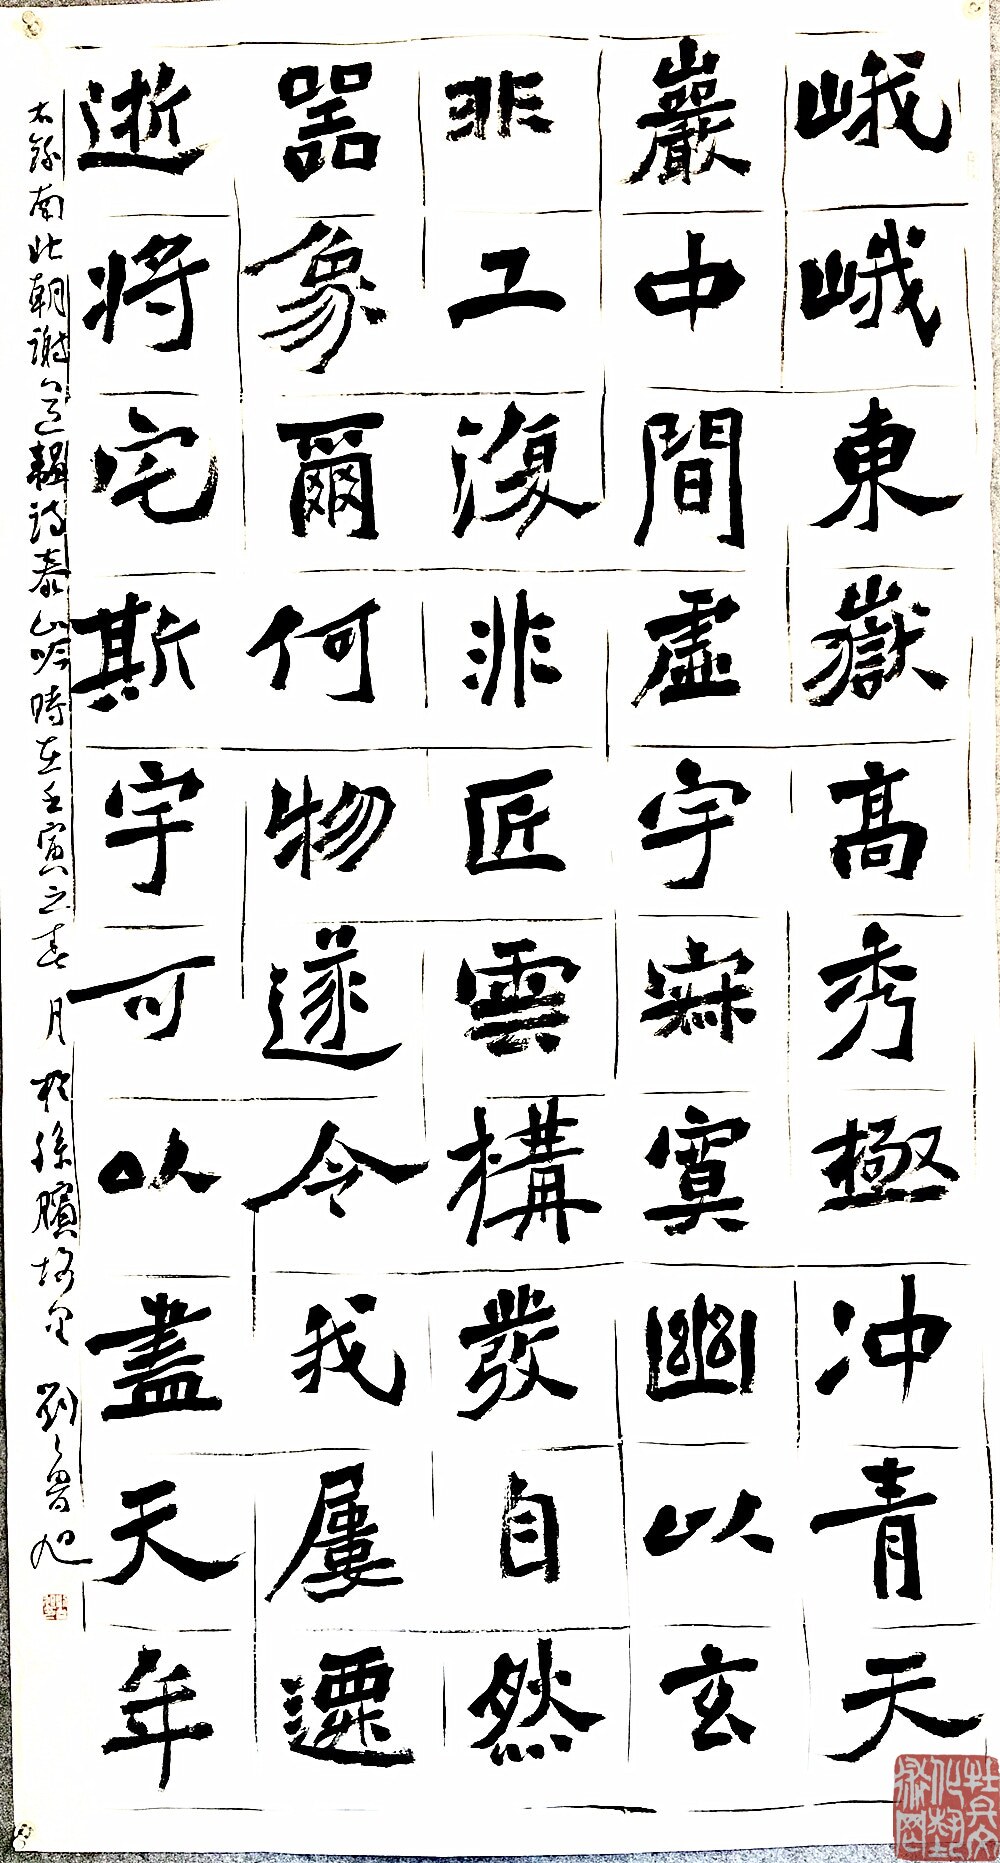 峨峨東嶽高秀極冲青天
巖中間虛宇寂寞幽以玄
非工復非匠雲構發自然
器象爾何物遂令我屢遷
逝將宅斯宇可以盡天年
右錄南北朝謝道韞詩泰山吟時在壬寅之春月於孫臏故里 劉魯旭